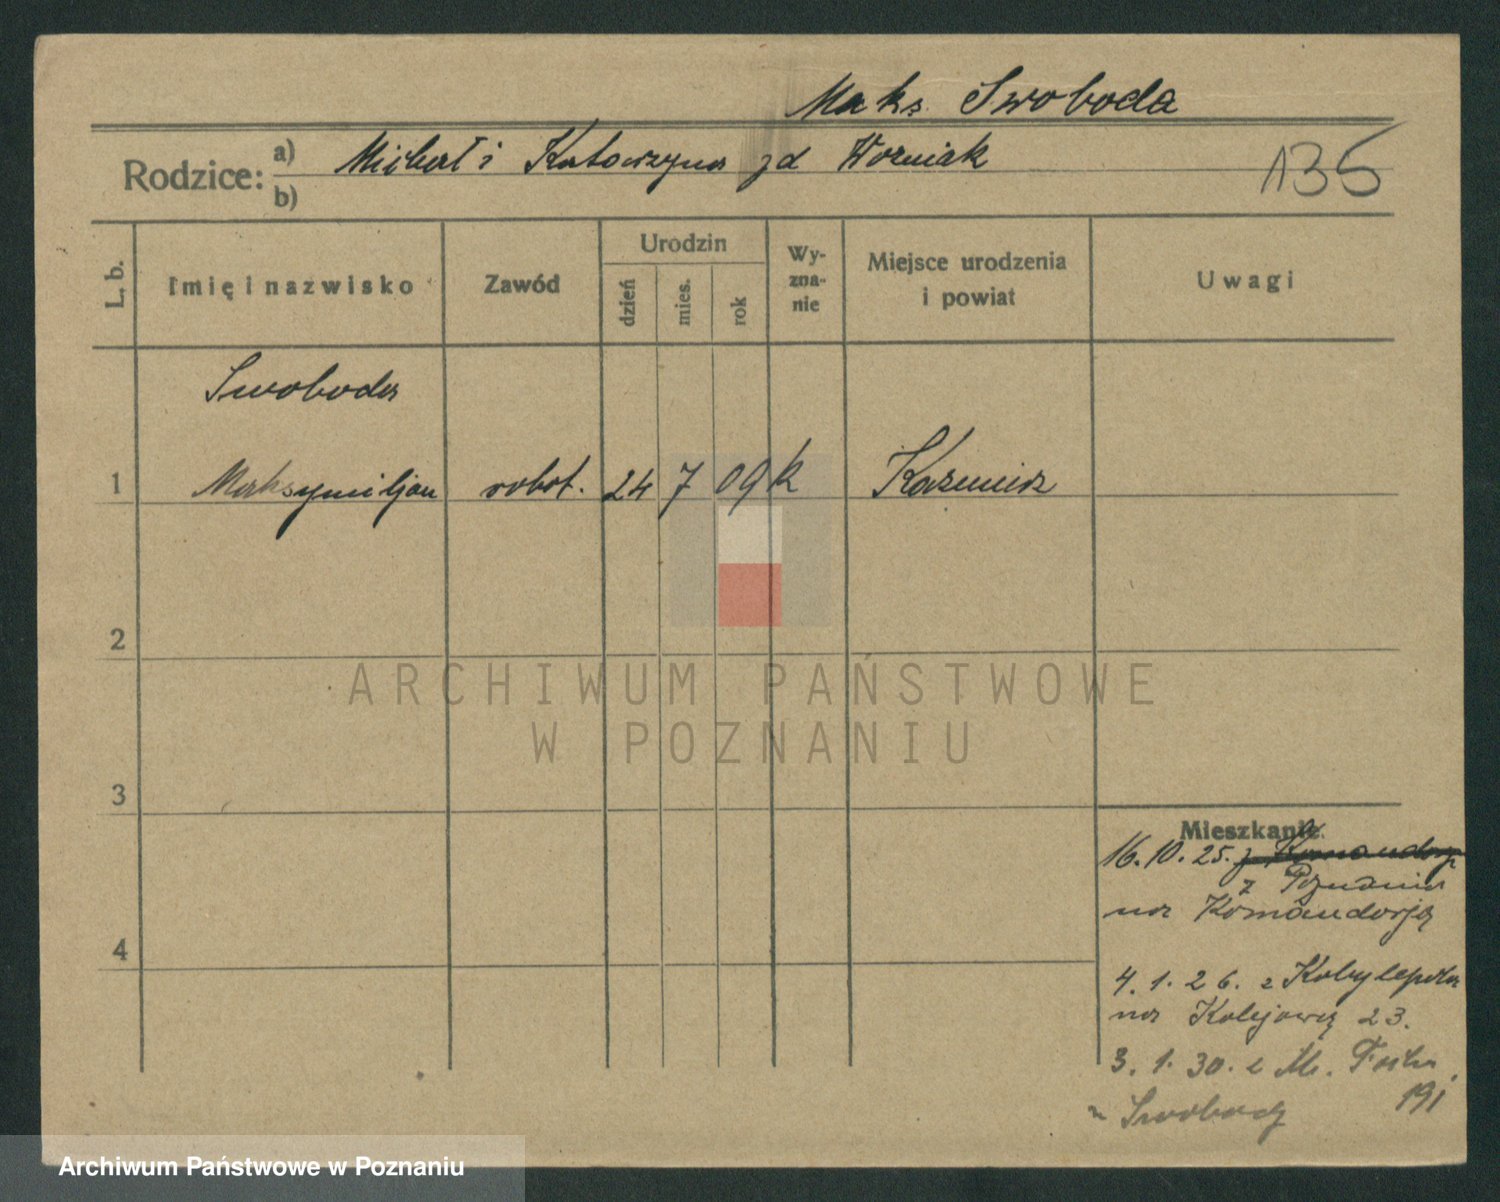 Maks. Swoboda
Rodzice: a) Michał i Katarzyna zd Woźniak
b)
135
L. b.
Imię i nazwisko
Zawód
Urodzin
dzień
mies.
rok
Wy-
zna-
nie
Miejsce urodzenia
i powiat
Uwagi
Swoboda
1 Maksymiljan robot. 24 7 09 k Kaźmierz
2
3
4
ARCHIWUM PAŃSTWOWE
W POZNANIU
Mieszkanie
16.10.25. z Komandorja
z Poznania
na Komandorję
4.1.26. z Kobylepola
na Kolejową 23.
3.1.30. z M. Focha
191
Swobody
Archiwum Państwowe w Poznaniu